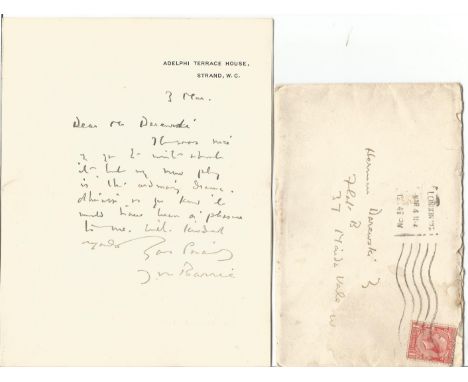 ADELPHI TERRACE HOUSE,
STRAND, W. C.
3 Mar.
Dear Mr Darewski
It was nice
of you to write about
it but my new play
is the ordinary drama.
Otherwise as you know it
would have been a pleasure
to me. With kindest
regards
Yours Sincerely
J M Barrie
Herman Darewski
Flat B
37 Maida Vale W